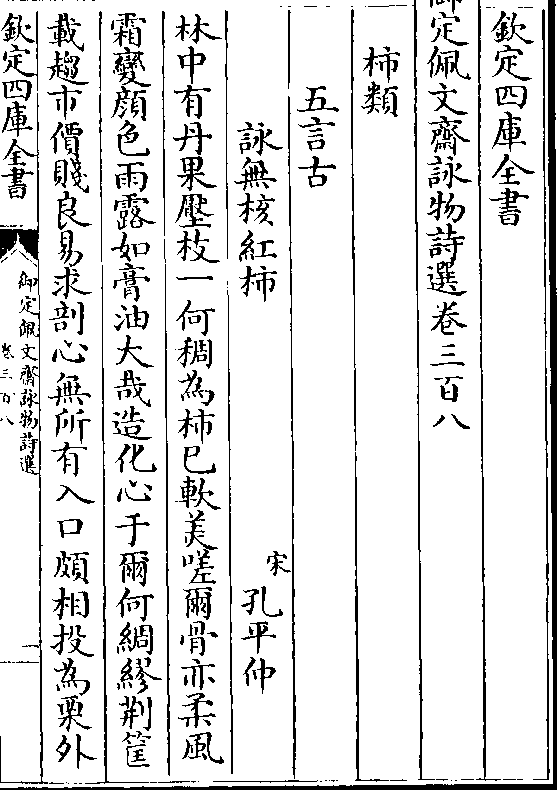 欽定四庫全書
御定佩文齋詠物詩選卷三百八
柿類
五言古
詠無核紅柿
宋 孔平仲
林中有丹果壓枝一何稠為柿已軟美嗟爾骨亦柔風
霜變顔色雨露如膏油大哉造化心于爾何綢繆荆筐
載趨市價賤良易求剖心無所有入口頗相投為栗外
欽定四庫全書
御定佩文齋詠物詩選
卷三百八
一